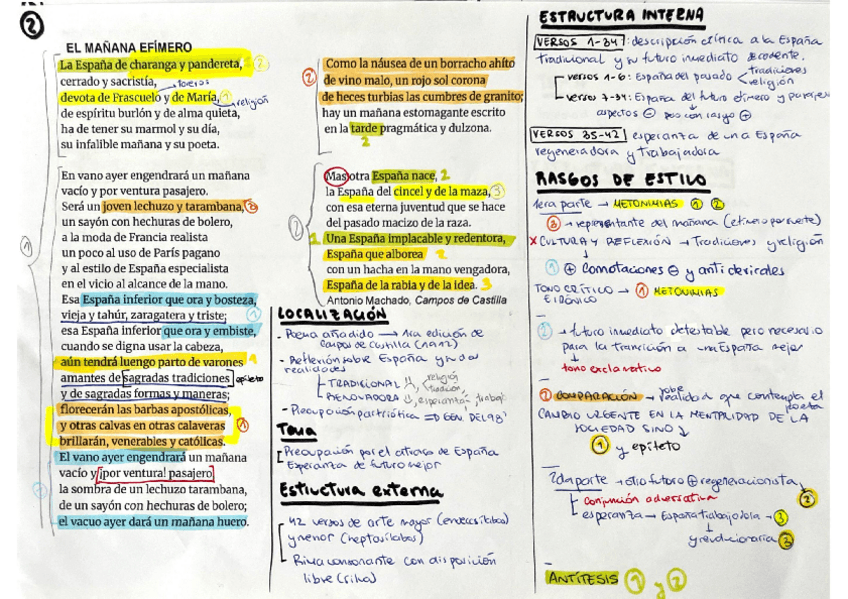 2
EL MAÑANA EFÍMERO
La España de charanga y pandereta,
cerrado y sacristía,
devota de Frascuelo y de María,
de espíritu burlón y de alma quieta,
ha de tener su marmol y su día,
su infalible mañana y su poeta.
religión
En vano ayer engendrará un mañana
vacío y por ventura pasajero.
Será un joven lechuzo y tarambana,
un sayón con hechuras de bolero,
a la moda de Francia realista
un poco al uso de París pagano
y al estilo de España especialista
en el vicio al alcance de la mano.
Esa España inferior que ora y bosteza,
vieja y tahúr, zaragatera y triste;
esa España inferior que ora y embiste,
cuando se digna usar la cabeza,
aún tendrá luengo parto de varones
amantes de sagradas tradiciones epíteto
y de sagradas formas y maneras;
florecerán las barbas apostólicas,
y otras calvas en otras calaveras
brillarán, venerables y católicas.
El vano ayer engendrará un mañana
vacío y ¡por ventura! pasajero,
la sombra de un lechuzo tarambana,
de un sayón con hechuras de bolero;
el vacuo ayer dará un mañana huero.
Como la náusea de un borracho ahíto
de vino malo, un rojo sol corona
de heces turbias las cumbres de granito;
hay un mañana estomagante escrito
en la tarde pragmática y dulzona.
Mas otra España nace,
la España del cincel y de la maza,
con esa eterna juventud que se hace
del pasado macizo de la raza.
Una España implacable y redentora,
España que alborea
con un hacha en la mano vengadora,
España de la rabia y de la idea.
Antonio Machado, Campos de Castilla
LOCALIZACIÓN
- Poema añadido → 1ra edición de
Campos de Castilla (1912)
- Reflexión sobre España y sus
realidades
TRADICIONAL religión tradición
RENOVADORA esperanza trabajo
- Preocupación patriótica ⇒ GEN. DEL 98'
Tema
Preocupación por el atraso de España
Esperanza de futuro mejor
Estructura externa
42 versos de arte mayor (endecasílabos)
y menor (heptasílabos)
Rima consonante con disposición
libre (silva)
ESTRUCTURA INTERNA
VERSOS 1-34: descripción crítica a la España
tradicional y su futuro inmediato
versos 1-6: España del pasado tradiciones religión
versos 7-34: España del futuro efímero y
aspectos ⊖ ⊕
VERSOS 35-42 esperanza de una España
regeneradora y trabajadora
RASGOS DE ESTILO
1era parte → METONIMIAS 1 2
3 → representante del mañana
X CULTURA Y REFLEXIÓN → Tradiciones y religión
1 ⊕ connotaciones ⊖ y anticlericales
TONO CRÍTICO E IRÓNICO → 1 METONIMIAS
2 → futuro inmediato detestable pero necesario
para la transición a una España mejor
tono exclamativo
2 COMPARACIÓN → sobre realidad que contempla el poeta
CAMBIO URGENTE EN LA MENTALIDAD DE LA
SOCIEDAD SINO
1 y epíteto
2da parte → otro futuro ⊕ regeneracionista
conjunción adversativa 2
esperanza → España trabajadora → 3
y revolucionaria 3
ANTÍTESIS 1 y 2